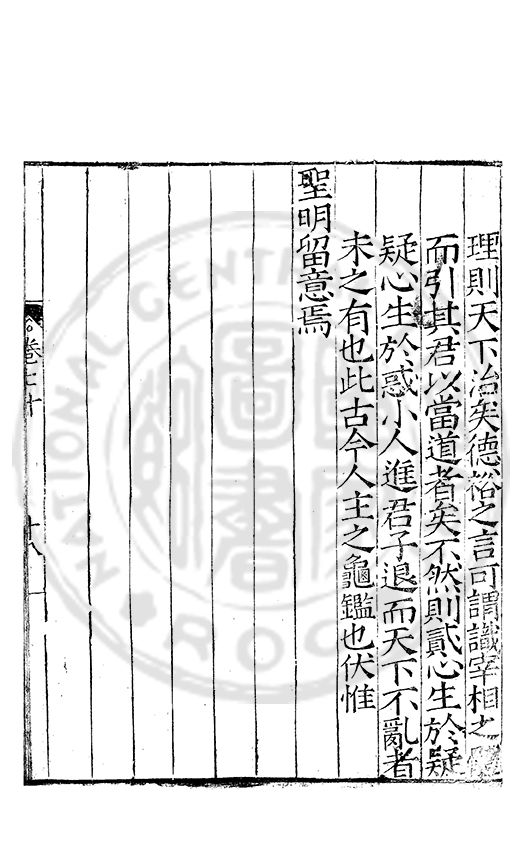 理則天下治矣德裕之言可謂識宰相之
而引其君以當道者矣不然則貳心生於疑
疑心生於惑小人進君子退而天下不亂者
未之有也此古今人主之龜鑑也伏惟
聖明留意焉
卷七十
十八
NATIONAL CENTRAL
ROC